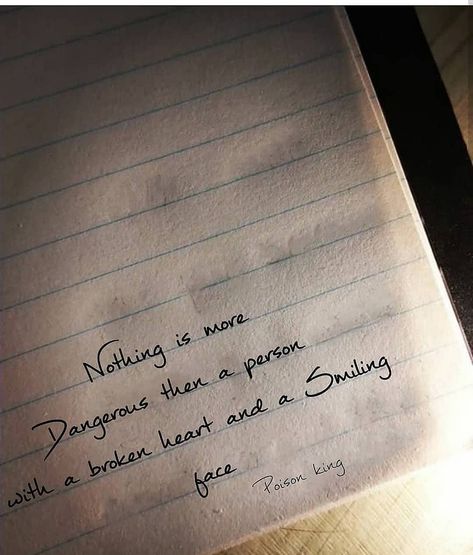 Nothing is more
Dangerous then a person
with a broken heart and a Smiling
face
Poison king